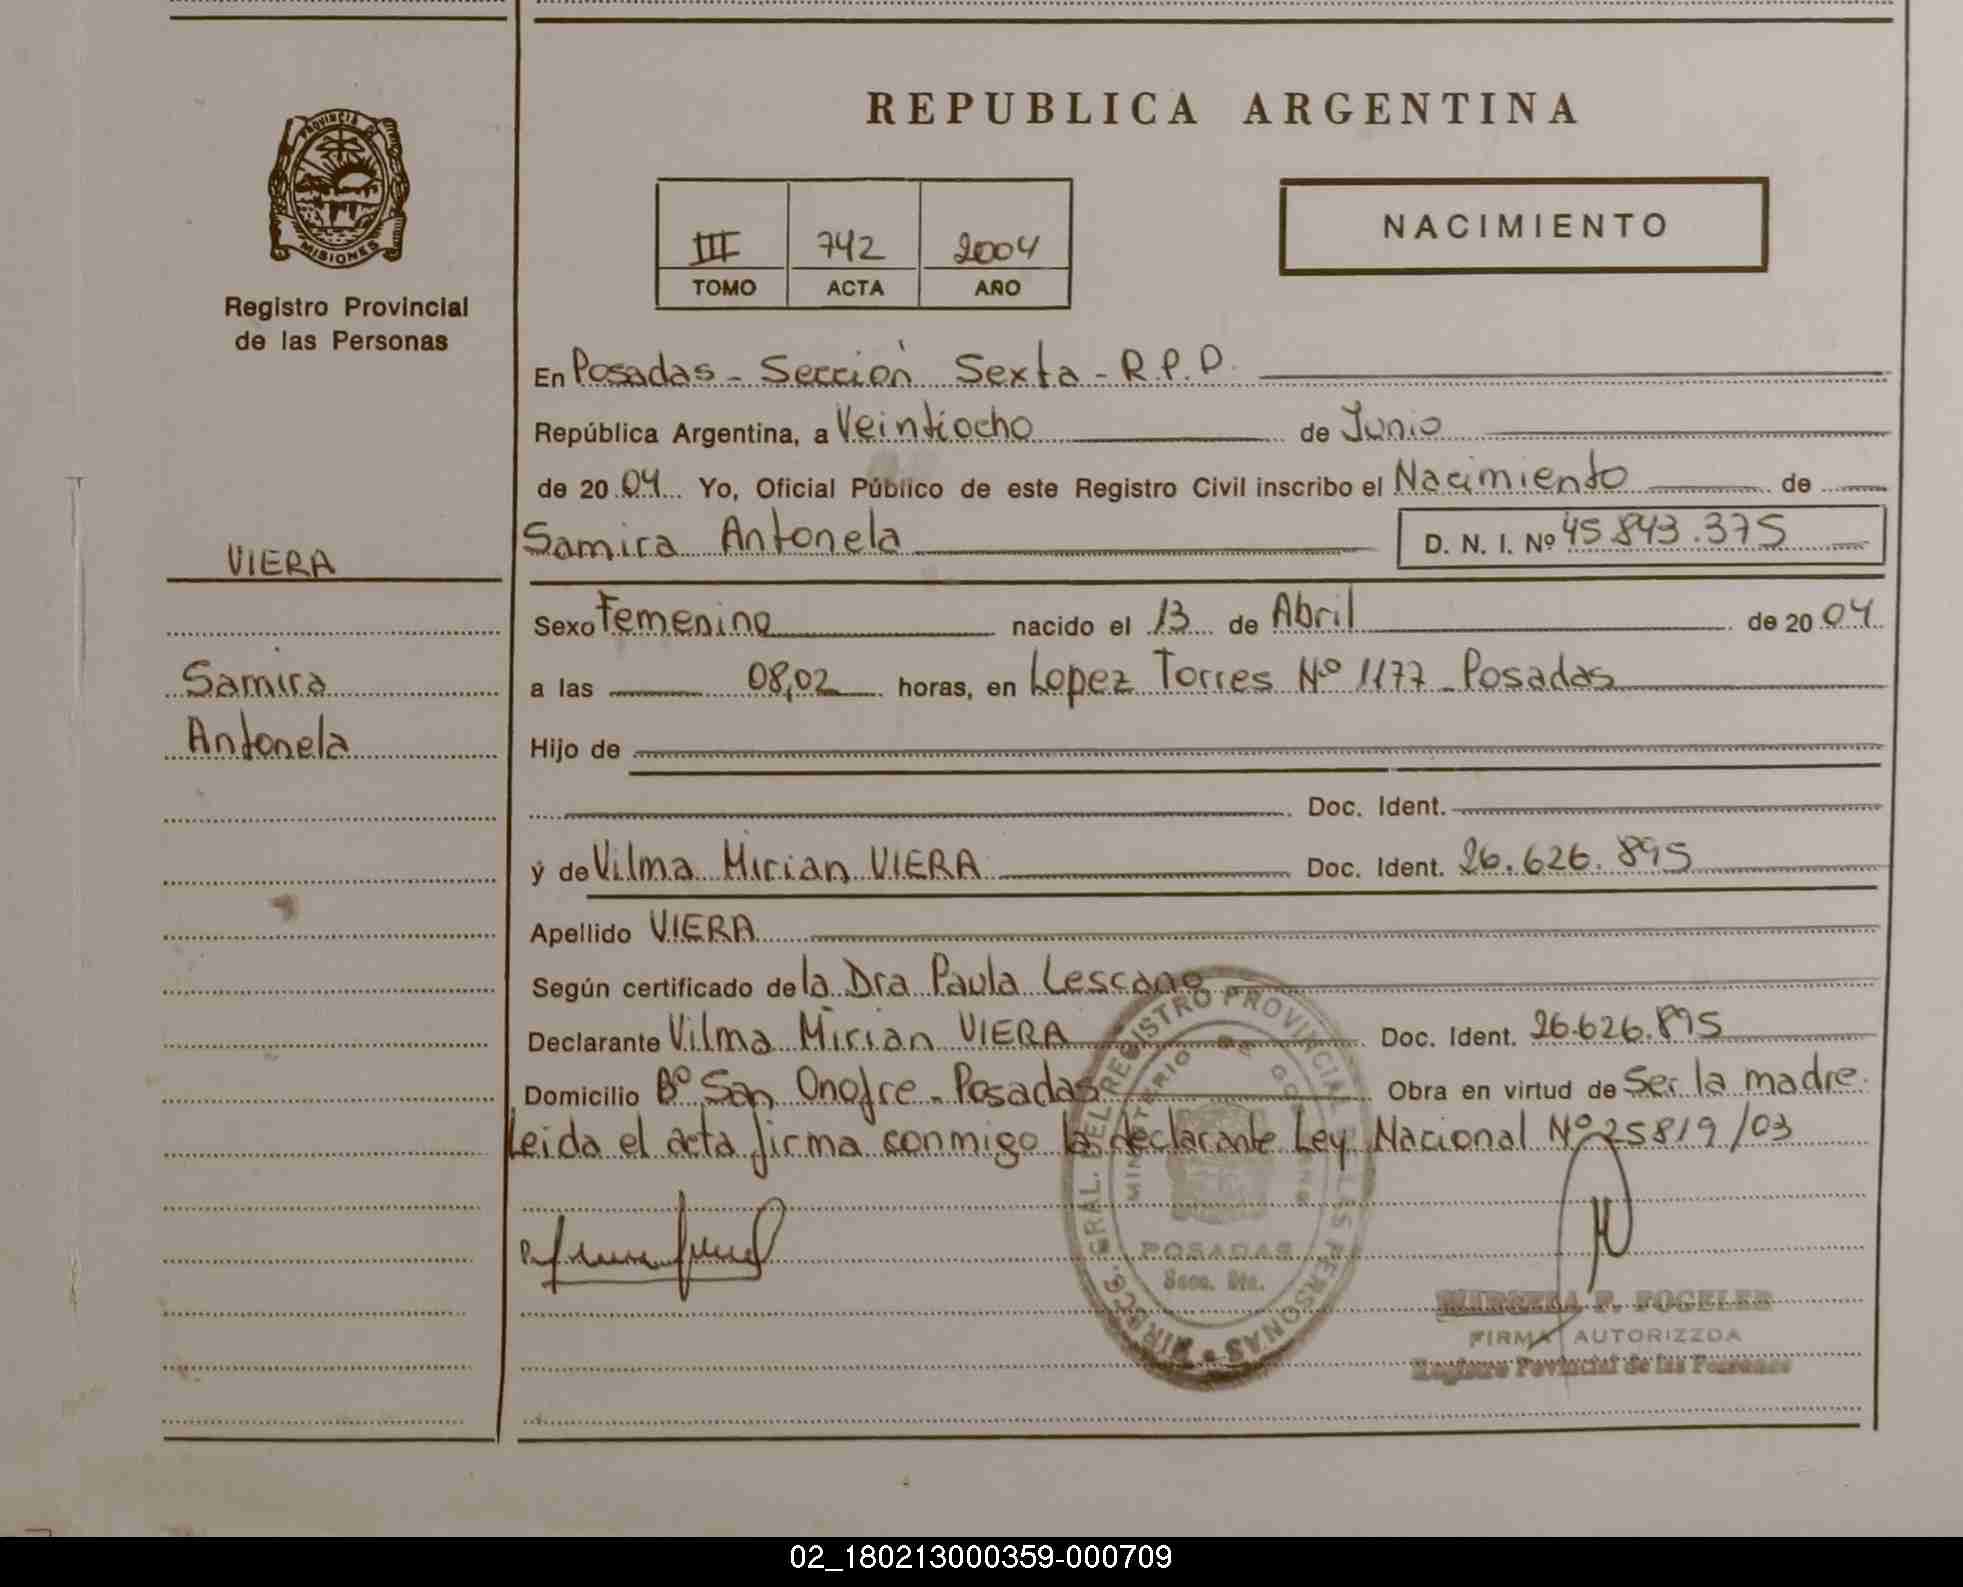 REPUBLICA ARGENTINA
PROVINCIA D
MISIONES
Registro Provincial
de las Personas
III 742 2004
TOMO ACTA AÑO
NACIMIENTO
En Posadas - Sección Sexta - R.P.P.
República Argentina, a Veintiocho de Junio
de 2004 Yo, Oficial Público de este Registro Civil inscribo el Nacimiento de
Samira Antonela D. N. I. Nº 45.843.375
VIERA
Samira
Antonela
Sexo Femenino nacido el 13 de Abril de 2004
a las 08,02 horas, en Lopez Torres Nº 1177 - Posadas
Hijo de
Doc. Ident.
y de Vilma Mirian VIERA Doc. Ident. 26.626.895
Apellido VIERA
Según certificado de la Dra Paula Lescano
Declarante Vilma Mirian VIERA Doc. Ident. 26.626.895
Domicilio Bº San Onofre - Posadas Obra en virtud de Ser la madre.
Leida el acta firma conmigo la declarante Ley Nacional Nº 25819/03
DIRECC. GRAL. DEL REGISTRO PROVINCIAL PERSONAS
MINISTERIO DE GOBIERNO
POSADAS
Secc. 6ta.
MARCELA F. FOGELER
FIRMA AUTORIZZDA
Registro Povincial de las Personas
02_180213000359-000709